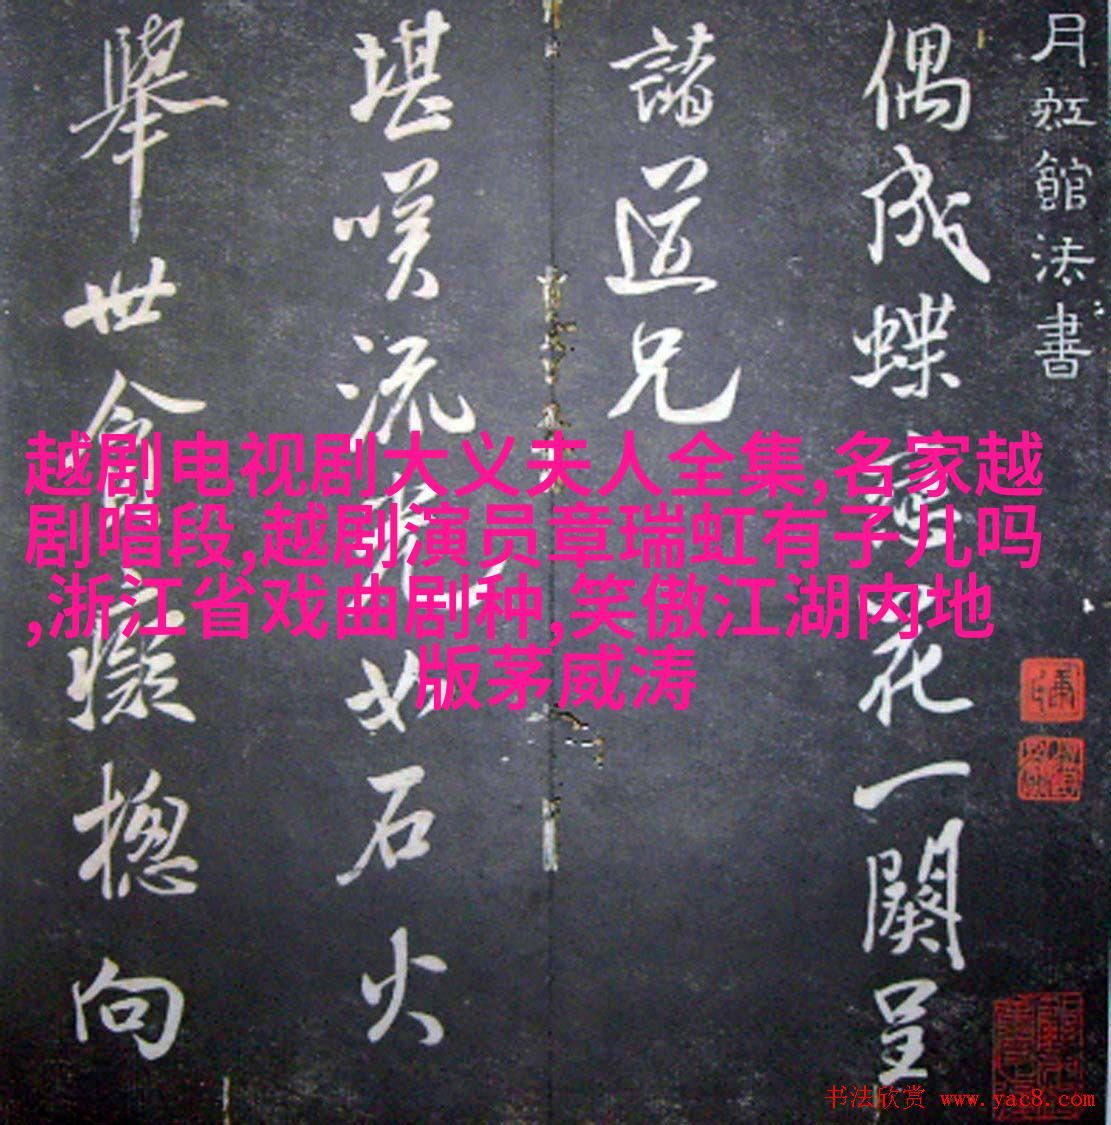 月虹館法書
偶成蝶戀花一闋呈
諸道兄
堪嘆流光如石火
舉世令癡擬揔向
越剧电视剧大义夫人全集,名家越
剧唱段,越剧演员章瑞虹有子儿吗
,浙江省戏曲剧种,笑傲江湖内地
版茅威涛
书法欣赏 www.yac8.com